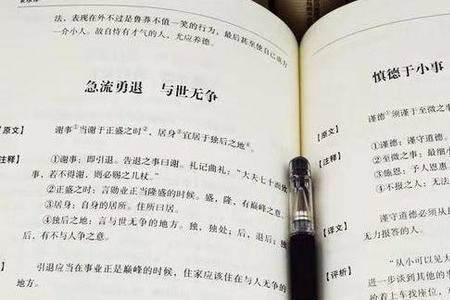 法，表现在外不过是鲁莽不值一笑的行为，最后甚至使自己成为
一介小人。故自恃有才气的人，尤应养德。
急流勇退 与世无争
【原文】 谢事①当谢于正盛之时②，居身③宜居于独后之地④。
【注释】 ①谢事：即引退。告退之事曰谢。礼记曲礼：“大夫七十而致
事，若不得谢，则必赐之几杖。”
②正盛之时：言勋业正当隆盛的时候。盛，隆，有巅峰之意。
③居身：自身的居所。住所曰居。
④独后之地：言与世无争的地方。独，独处；后，退后；独
后，有不与人争之意。
引退应当在事业正是巅峰的时候，住家应该住在与人无争的
地方。
慎德于小事
【原文】 谨德①须谨于至微之事
【注释】 ①谨德：谨守道德。
②至微之事：最细小
③施恩：予人恩惠
④不报之人：无法
【译文】 谨守道德必须从
无力报答的人。
【评析】 “从小可以见大
进一步谈到其他的事
抢着上车找座位，